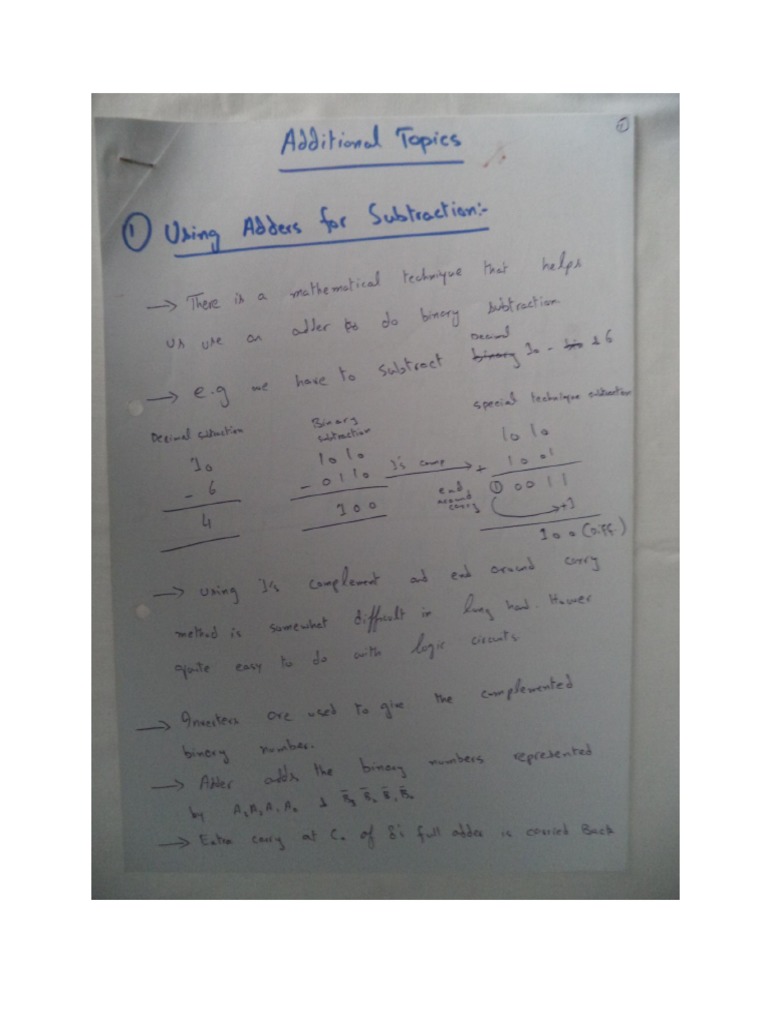 ①
Additional Topics
① Using Adders for Subtraction:-
→ There is a mathematical technique that helps
us use an adder to do binary subtraction
→ e.g we have to subtract Decimal 10 - 6
Decimal subtraction Binary subtraction special technique subtraction
10 1010 1010
- 6 - 0110 1's comp → + 1001
4 100 end around carry ① 0011
+1
100 (Diff.)
→ using 1's complement and end around carry
method is somewhat difficult in long hand. However
quite easy to do with logic circuits
→ Inverters are used to give the complemented
binary number.
→ Adder adds the binary numbers represented
by A₃A₂A₁A₀ & B̅₃ B̅₂ B̅₁ B̅₀
→ Extra carry at C₀ of 8's full adder is carried Back